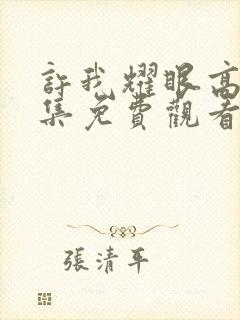 許我耀眼高
集免費觀看
張清平